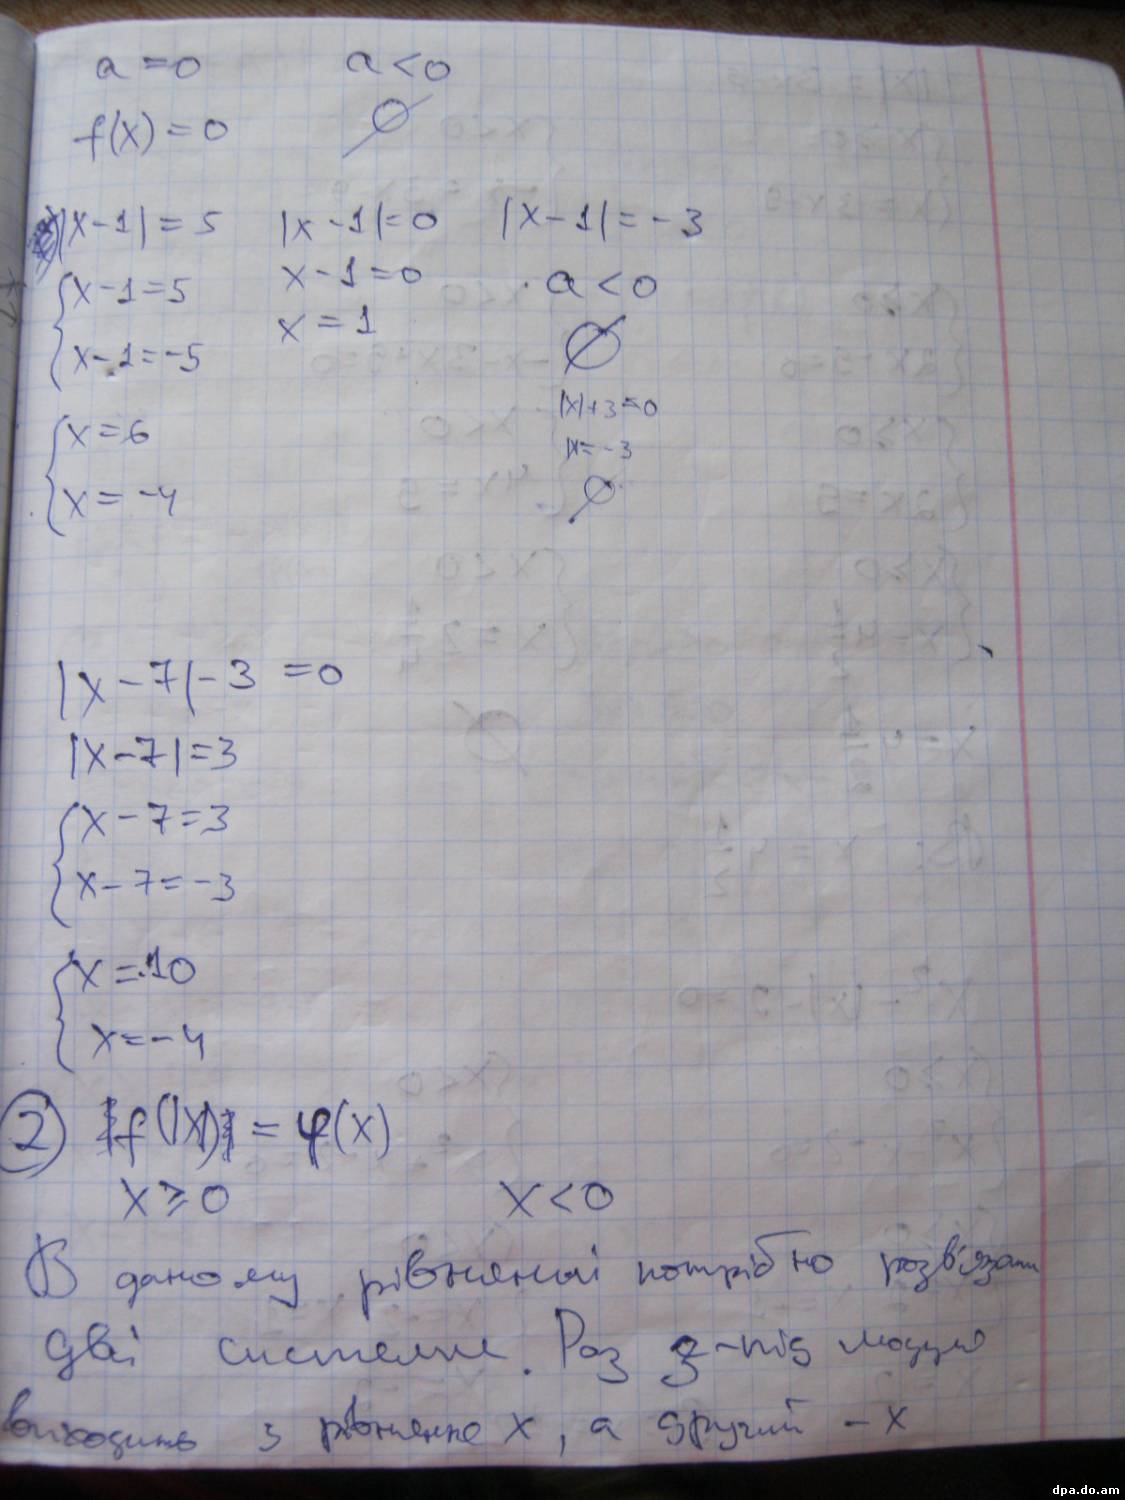 a = 0 a < 0
f(x) = 0 ∅
|x-1| = 5 |x-1| = 0 |x-1| = -3
{ x-1=5 x-1=0 a < 0
x-1=-5 x = 1 ∅
|x|+3=0
{ x=6 |x|=-3
x = -4 ∅
|x-7|-3 = 0
|x-7|=3
{ x-7=3
x-7=-3
{ x=10
x=-4
2) f(|x|) = φ(x)
x ≥ 0 x < 0
В даному рівнянні потрібно розв'язати
дві системи. Раз з-під модуля
виходить з рівняння x, а другий -x
dpa.do.am